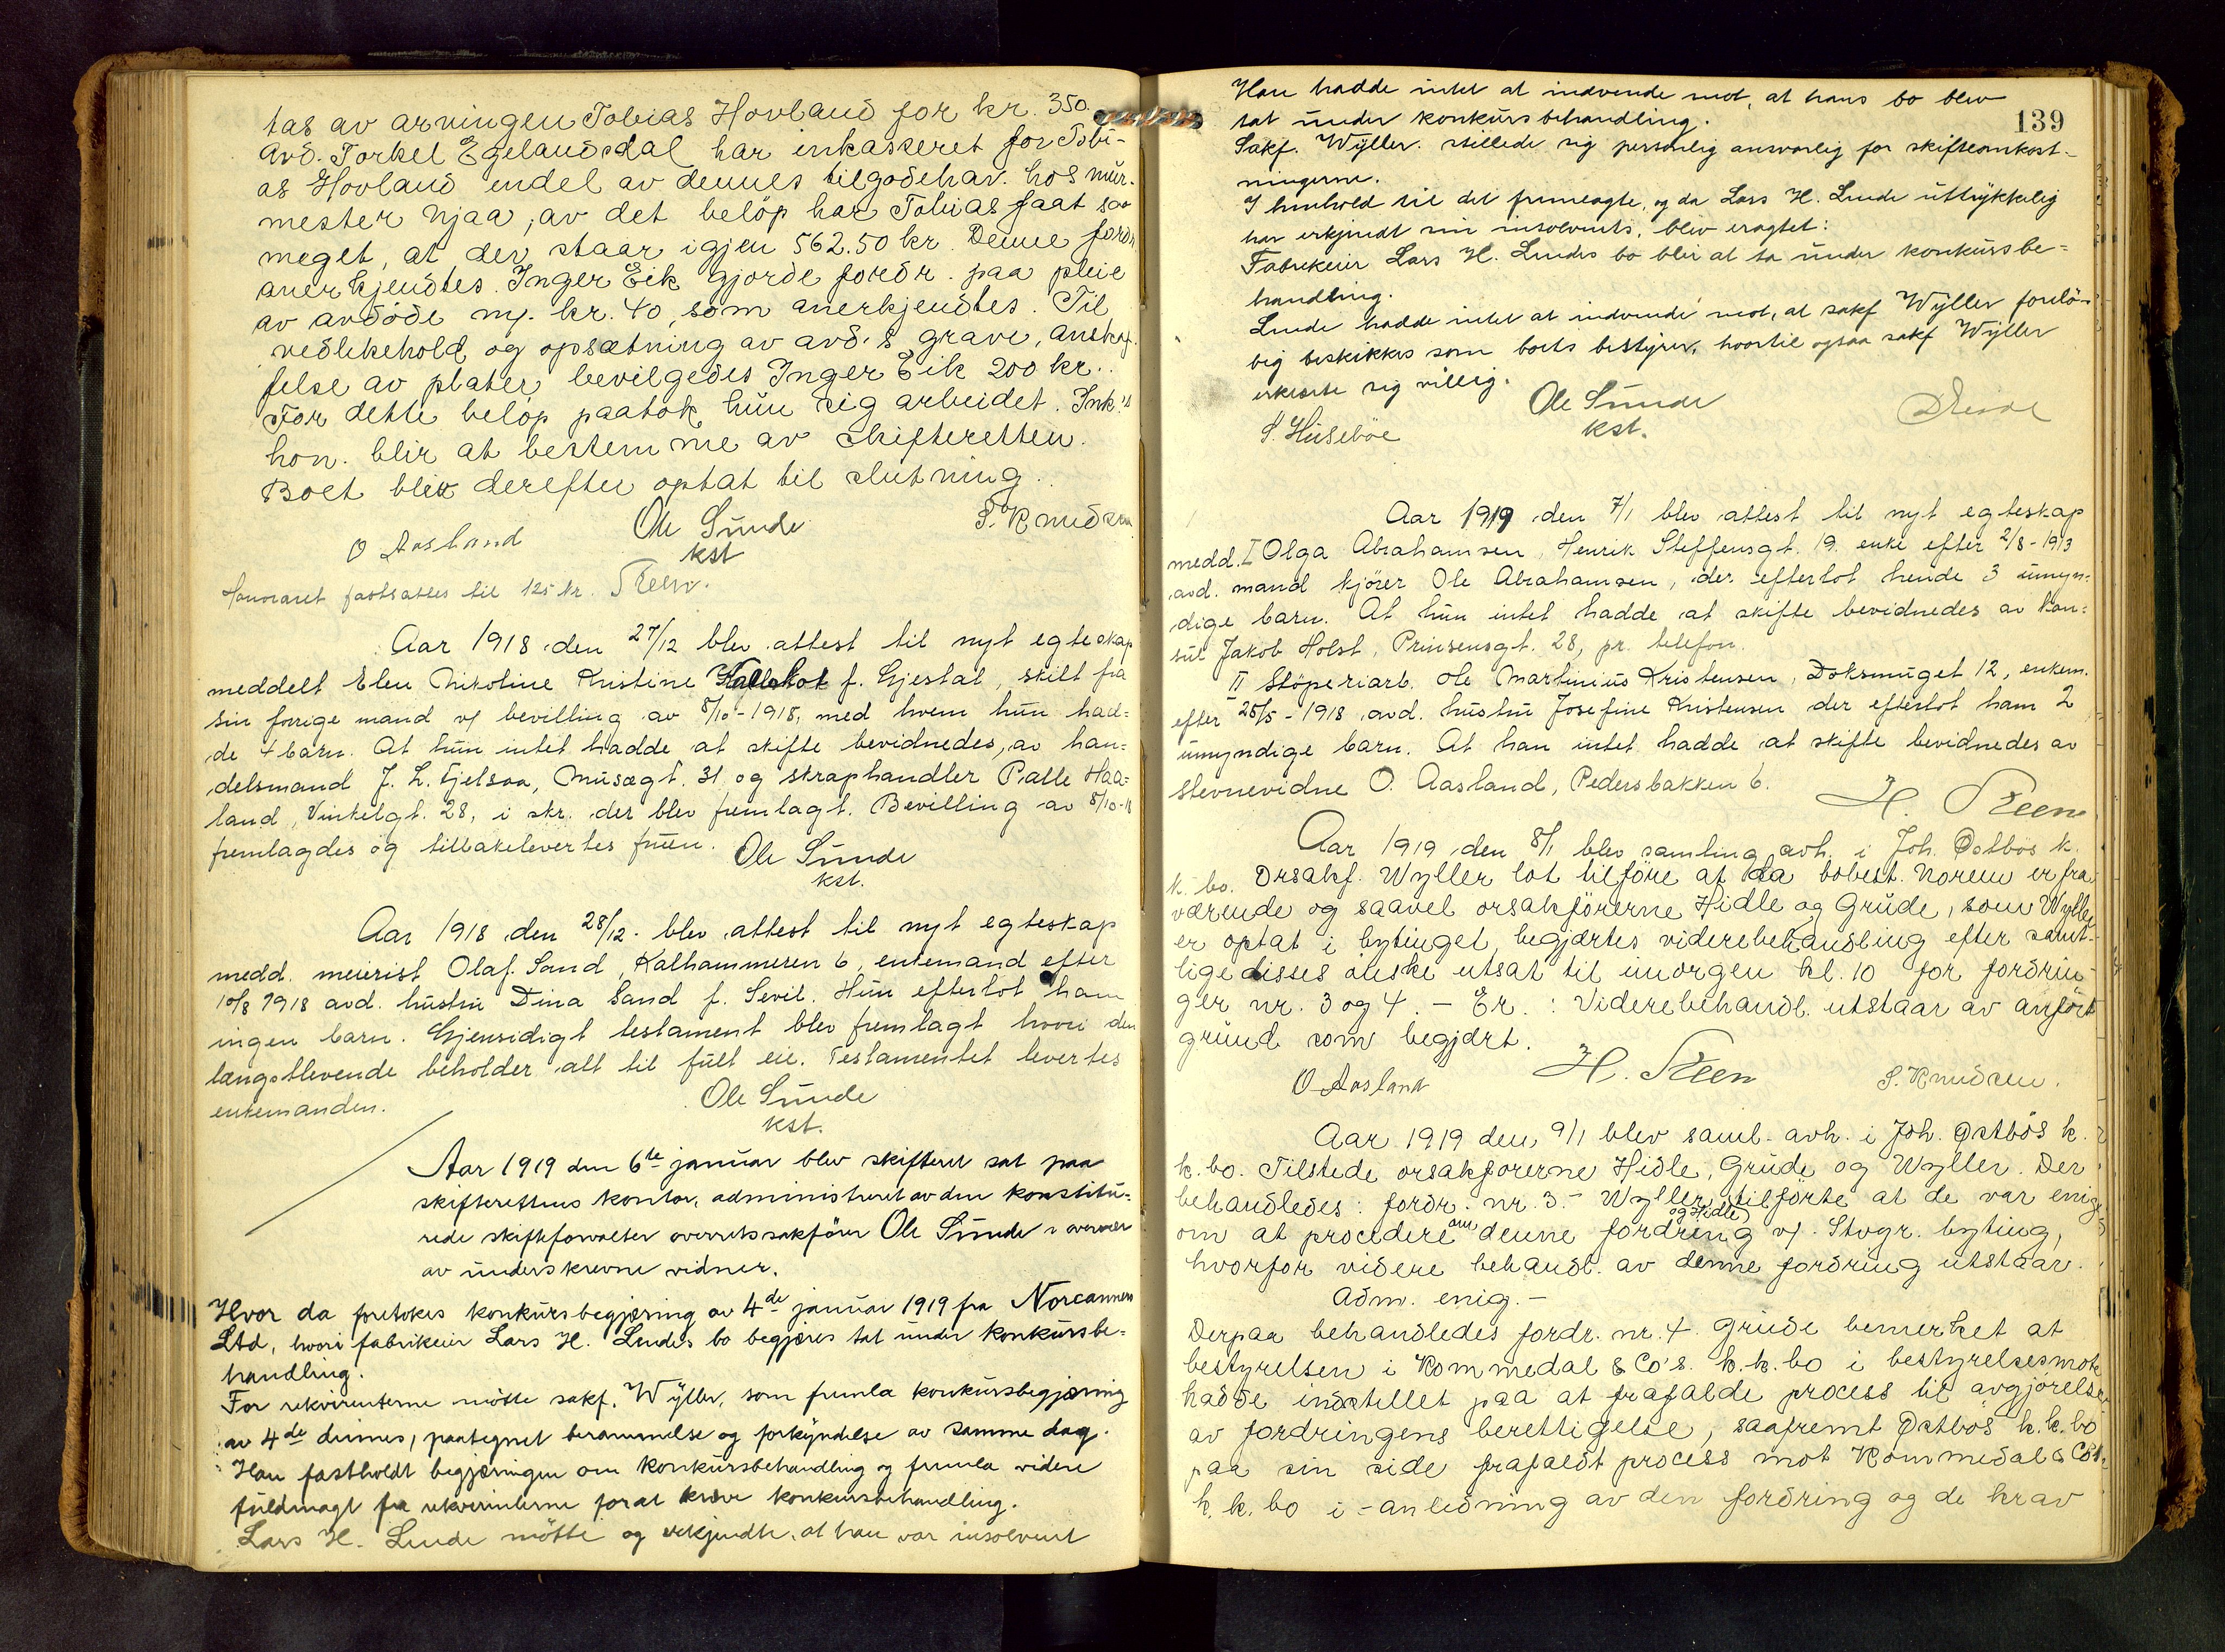 tas av arvingen Tobias Hovland for kr. 350.
Avd. Torkel Egelandsdal har inkasseret for Tobi-
as Hovland endel av dennes tilgodehav. hos mur-
mester Njaa, av det belöp har Tobias faat saa
meget, at der staar igjen 562.50 kr. Denne fordr.
anerkjendtes. Inger Eik gjorde fordr. paa pleie
av avdöde m/. kr. 40, som anerkjendtes. Til
vedlikehold og opsætning av avd.s grave, anskaf-
felse av plater, bevilgedes Inger Eik 200 kr..
For dette belöp paatok hun sig arbeidet. Ink.'s
hon. blir at bestemme av skifteretten.
Boet blev derefter optat til slutning.
O Aasland Ole Sunde S. Knudsen
kst
Honoraret fastsattes til 125 kr. Steen.
Aar 1918 den 27/12 blev attest til nyt egteskap
meddelt Elen Nikoline Kristine f. Gjestal, skilt fra
sin forrige mand v/ bevilling av 8/10-1918, med hvem hun had-
de 4 barn. At hun intet hadde at skifte bevidnedes, av han-
delsmand J. L. Tjelsaa, Musægt. 31 og skraphandler Palle Haa-
land, Vinkelgt. 28, i skr. der blev fremlagt. Bevilling av 8/10-18
fremlagdes og tilbakelevertes fruen. Ole Sunde
kst.
Aar 1918 den 28/12. blev attest til nyt egteskap
medd. meierist Olaf Sand, Kalhammeren 6, enkemand efter
10/8 1918 avd. hustru Dina Sand f. Sevil. Hun efterlot ham
ingen barn. Gjensidigt testament blev fremlagt hvori den
længstlevende beholder alt til fult eie. Testamentet levertes
enkemanden. Ole Sunde
kst.
Aar 1919 den 6te januar blev skifteret sat paa
skifterettens kontor, administreret av den konstitu-
rede skifteforvalter overretssakförer Ole Sunde i overvær
av underskrevne vidner.
Hvor da foretokes konkursbegjæring av 4de januar 1919 fra Norcanners
Ltd, hvori fabrikeier Lars H. Lindes bo begjæres tat under konkursbe-
handling.
For rekvirenterne mötte sakf. Wÿller, som fremla konkursbegjæring
av 4de dennes, paategnet berammelse og forkyndelse av samme dag.
Han fastholdt begjæringen om konkursbehandling og fremla videre
fuldmagt fra rekvirenterne forat kræve konkursbehandling.
Lars H. Linde mötte og erkjendte, at han var insolvent
139
Han hadde intet at indvende mot, at hans bo blev
tat under konkursbehandling.
Sakf. Wÿller. stillede sig personlig ansvarlig for skifteomkost-
ningerne.
I henhold til det fremlagte, og da Lars H. Linde uttrykkelig
har erkjendt sin insolvents, blev eragtet:
Fabrikeier Lars H. Lindes bo blir at ta under konkursbe-
handling.
Linde hadde intet at indvende mot, at sakf Wÿller forelö-
big beskikkes som boets bestyrer, hvortil ogsaa sakf Wÿller
erklærte sig villig.
S. Huseböe Ole Sunde
kst.
Aar 1919 den 7/1 blev attest til nyt egteskap
medd. I Olga Abrahamsen, Henrik Steffensgt. 19. enke efter 2/8-1913
avd. mand kjörer Ole Abrahamsen, der efterlot hende 3 umyn-
dige barn. At hun intet hadde at skifte bevidnedes av kon-
sul Jakob Holst, Prinsensgt. 28, pr. telefon.
II Stöperiarb. Ole Martinius Kristensen, Doksmuget 12, enkem.
efter 25/5-1918 avd. hustru Josefine Kristensen der efterlot ham 2
umyndige barn. At han intet hadde at skifte bevidnedes av
stevnevidne O. Aasland, Pedersbakken 6.
H. Steen
Aar 1919 den 8/1 blev samling avh. i Joh. Östbös k.
k. bo. Orsakf. Wyller lot tilföre at da bobest. Norem er fra-
værende og saavel orsakförerne Hidle og Grude, som Wyller
er optat i bytinget, begjærtes viderebehandling efter samt-
lige disses önske utsat til imorgen kl. 10 for fordrin-
ger nr. 3 og 4. - Er.: Viderebehandl. utstaar av anfört
grund som begjært.
O Aasland H. Steen S. Knudsen.
Aar 1919 den 9/1 blev saml. avh. i Joh. Östbös k.
k. bo. Tilstede orsakförerne Hidle, Grude og Wyller. Der
behandledes: fordr. nr. 3 - Wyller og Hidle tilförte at de var enige
om at procedere om denne fordring v/. Stvgr. byting,
hvorfor videre behandl. av denne fordring utstaar.
Adm. enig. -
Derpaa behandledes fordr. nr. 4 Grude bemerket at
bestyrelsen i Kommedal & Co's. k. k. bo i bestyrelsesmöte
hadde indstillet paa at frafalde process til avgjörelse
av fordringens berettigelse, saafremt Östbös k. k. bo
paa sin side frafaldt process mot Kommedal & Co's
k. k. bo i -anledning av den fordring og de krav